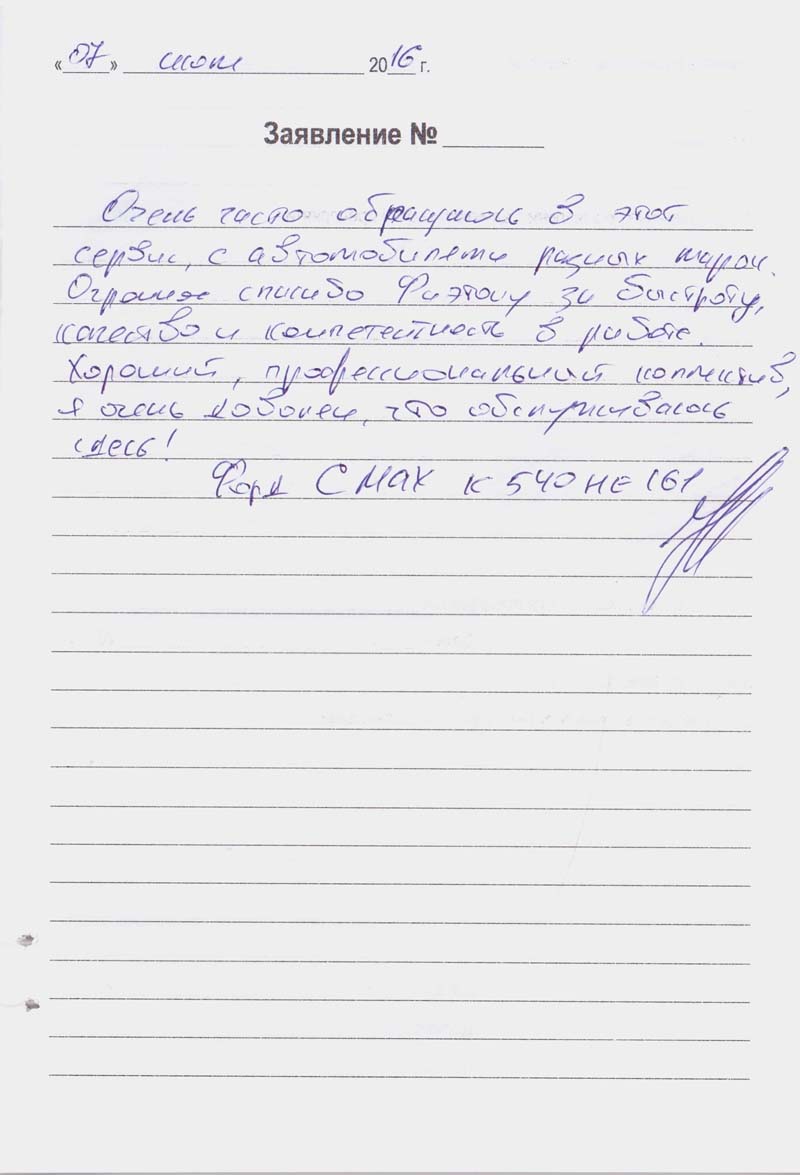 «07» июля 2016 г.
Заявление №
Очень часто обращаюсь в этот
сервис, с автомобилями разных марок.
Огромное спасибо Фаэтону за быстроту,
качество и компетентность в работе.
Хороший, профессиональный коллектив,
я очень доволен, что обслуживаюсь
здесь!
Форд C MAX К 540 НЕ 161